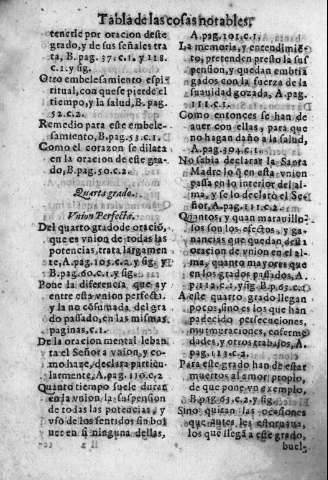 Tabla de las cosas notables,
tenerle por oracion deste
grado, y de sus señales tra
ta, B. pag. 37. c. 1. y 118.
c. 1. y sig.
Otro embelesamiento espi
ritual, con que se pierde el
tiempo, y la salud, B. pag.
52. c. 2.
Remedio para este embele-
samiento, B. pag. 53. c. 1.
Como el corazon se dilata
en la oracion de este gra-
do, B. pag. 50. c. 2.
Quarto grado.
Vnion Perfecta.
Del quarto grado de oració,
que es vnion de todas las
potencias, trata largamen
te, A. pag. 105. c. 2. y sig. y
B. pag. 60. c. 1. y sig.
Pone la diferencia que ay
entre esta vnion perfecta,
y la no cõsumada del gra
do passado, en las mismas
paginas, c. 1.
De la oracion mental leban
ta el Señor a vnion, y co-
mo haze, declara particu-
larmente, A. pag. 110. c. 2
Quanto tiempo suele durar
en la vnion, la suspension
de todas las potencias, y
vso de los sentidos sin bol
uer en si ninguna dellas,
A. pag. 101. c. 1.
La memoria, y entendimiẽ-
to, pretenden presto la sus
pension, y quedan embria
gados con la fuerza de la
suauidad gozada, A. pag.
111. c. 1.
Como entonces se han de
auer con ellas, para que
no hagan daño a la salud,
A. pag. 304. c. 1.
No sabia declarar la Santa
Madre lo q̃ en esta vnion
passa en lo interior del al-
ma, y se lo declaró el Se-
ñor, A. pag. 111. c. 2.
Quantos, y quan marauillo-
sos son los efectos, y ga-
nancias que quedan desta
oracion de vnion en el al-
ma, quanto mayores que
en los grados passados, A.
p. 112. c. 1. y sig. B. p. 65. c. 1
A este quarto grado llegan
pocos, sino es los que han
padecido persecuciones,
murmuraciones, enferme
dades, y otros trabajos, A.
pag. 113. c. 2.
Para este grado han de estar
muertos al amor propio,
de que pone vn exemplo,
B. pag. 63. c. 2. y sig.
Sino quitan las ocasiones
que antes les estoruauan,
los que llegã a este grado,
buel-